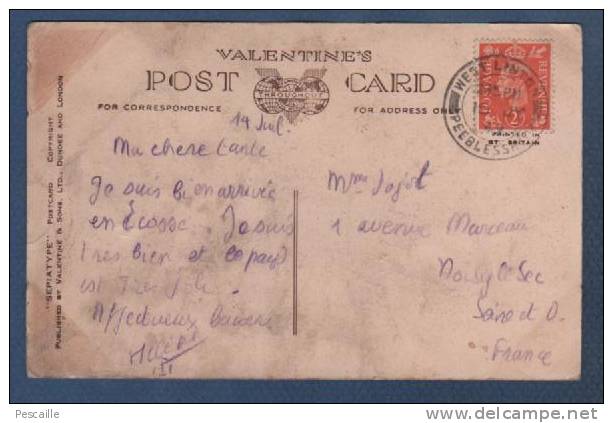 VALENTINE'S
POST CARD
THROUGHOUT
FOR CORRESPONDENCE
FOR ADDRESS ONLY
"SEPIATYPE" POSTCARD COPYRIGHT
PUBLISHED BY VALENTINE & SONS, LTD., DUNDEE AND LONDON
POSTAGE REVENUE
WEST LINTON
PEEBLESSHIRE
PRINTED IN
GT. BRITAIN
14 Juil.
Ma chere tante
Je suis bien arrivée
en Ecosse. Je suis
tres bien et le pays
est Tres joli.
Affectueux baisers
Mme Jajot
1 avenue Marceau
Noisy le Sec
Seine et O.
France
Pescaille
www.delcampe.net